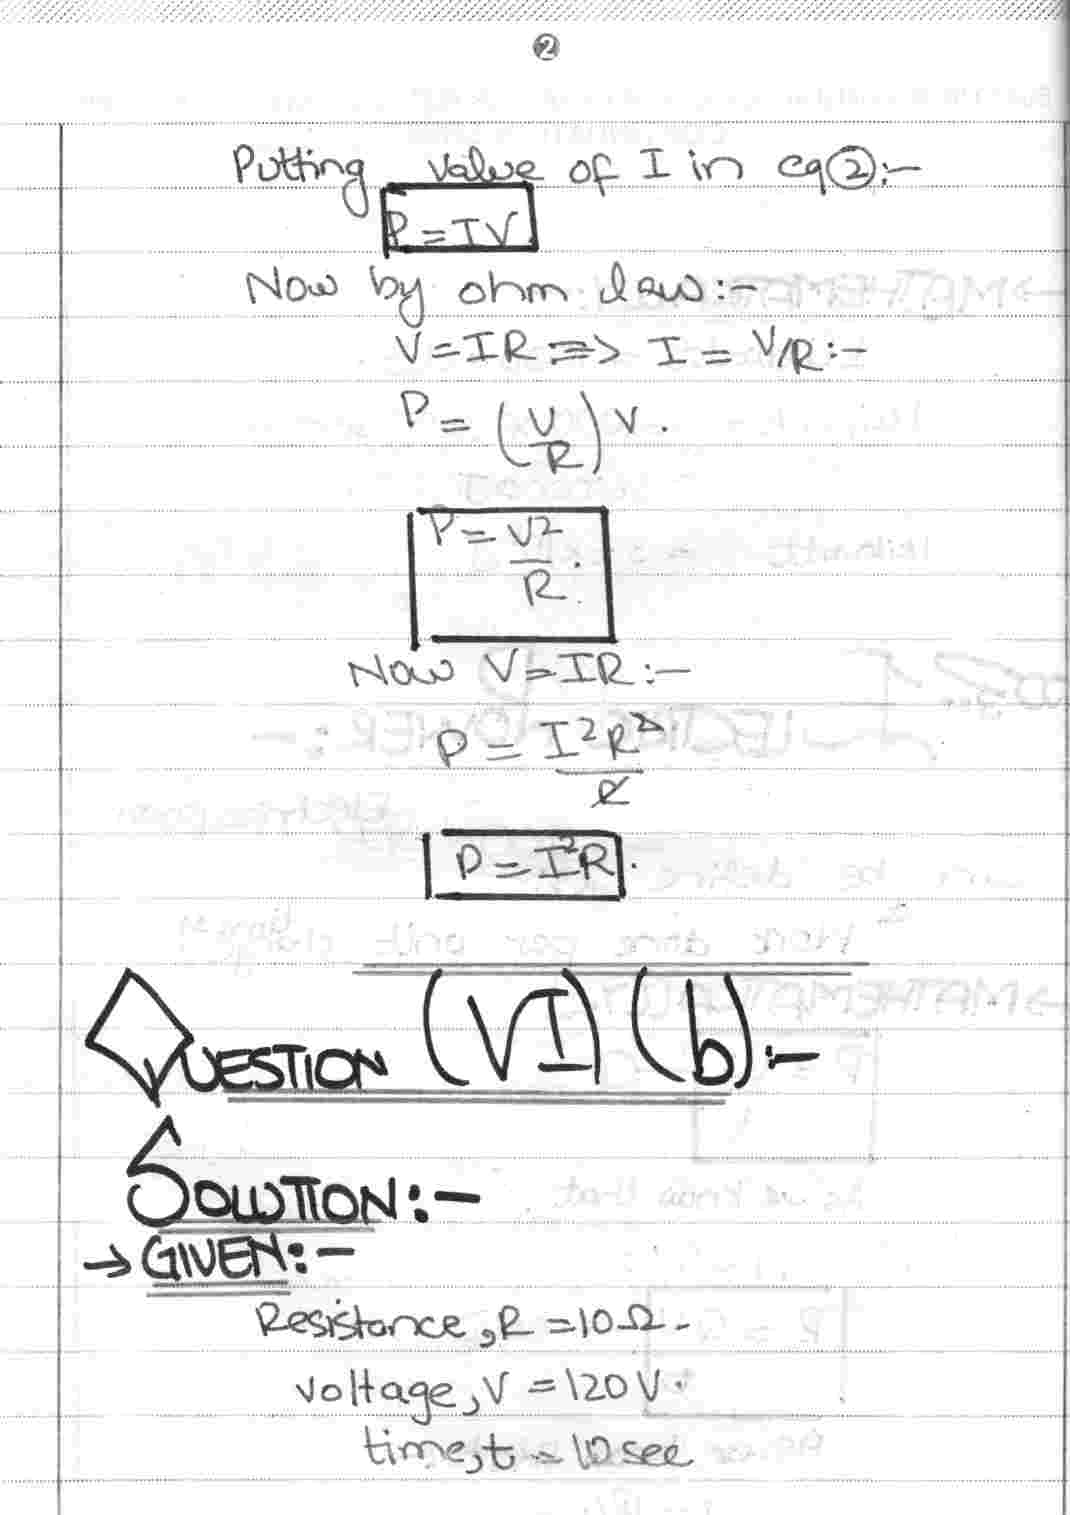 2
Putting value of I in eq②:-
P=IV
Now by ohm law:-
V=IR => I = V/R:-
P = (V/R) V.
P = V²/R.
Now V=IR:-
P = I²R²/R
P=I²R.
QUESTION (VI) (b):-
SOLUTION:-
→ GIVEN:-
Resistance, R = 10Ω.
voltage, V = 120 V.
time, t = 10 sec